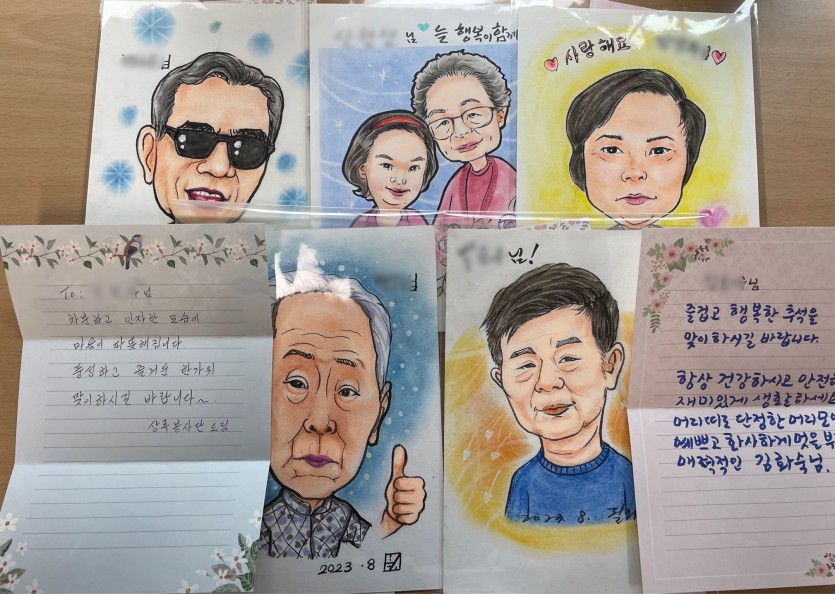 님 늘 행복이 함께
사랑해요
To: 님
차분하고 인자한 모습에
마음이 따뜻해집니다.
풍성하고 즐거운 한가위
맞이하시길 바랍니다~
상록봉사단 드림
2023.8
님!
2023. 8.
님
즐겁고 행복한 추석을
맞이하시길 바랍니다.
항상 건강하시고 안전하
재미있게 생활하세요
머리띠로 단정한 머리모
예쁘고 화사하게 멋을
매력적인 김화숙님.